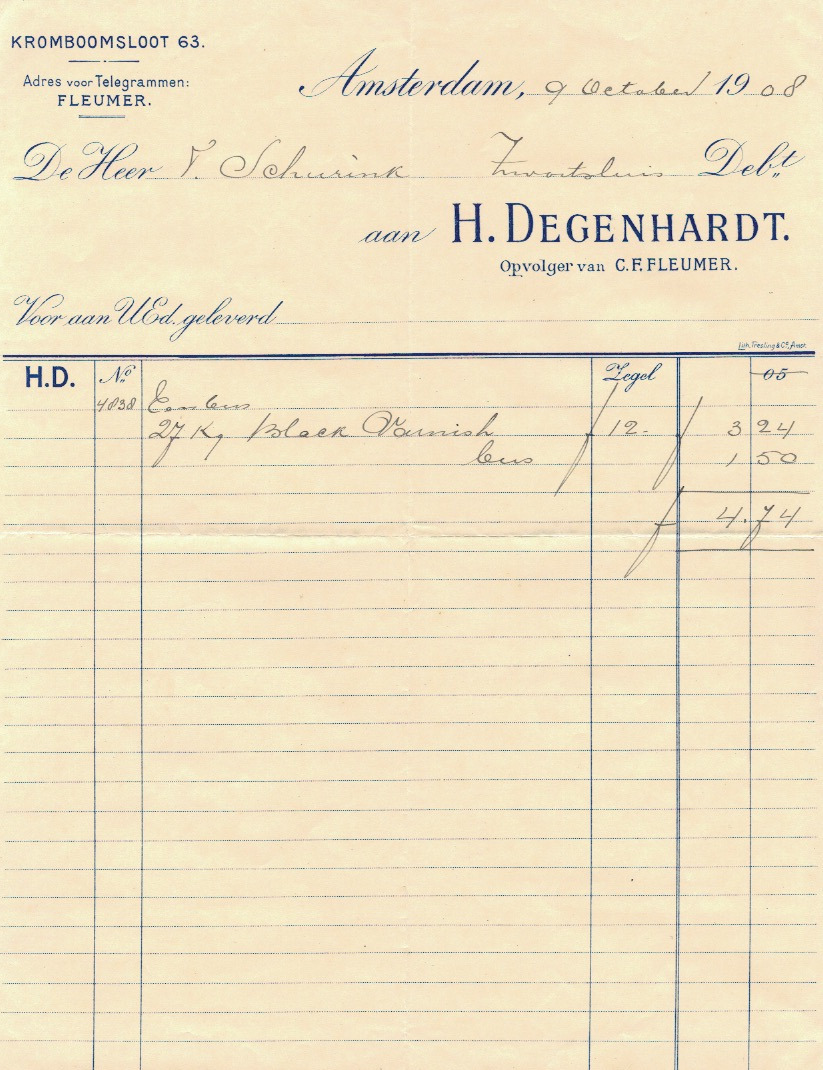 KROMBOOMSLOOT 63.
Adres voor Telegrammen:
FLEUMER.
Amsterdam, 9 October 1908
De Heer V. Schurink Zwartsluis Debt
aan H. DEGENHARDT.
Opvolger van C. F. FLEUMER.
Voor aan UEd. geleverd
Lith. Tresling & Co. Amst.
H.D. No Zegel 05
4838 Een bus
27 Kg Black Varnish f 12.- f 3 24
bus 1 50
f 4.74